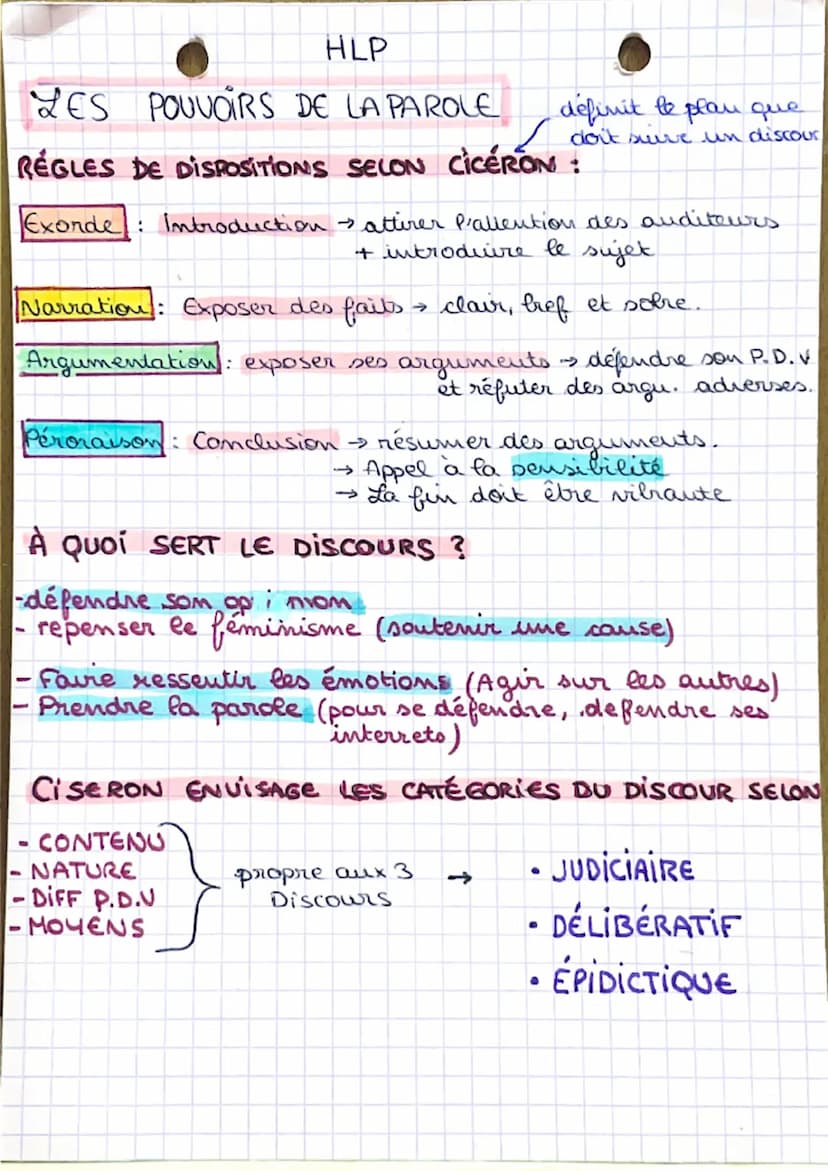 HLP
LES POUVOIRS DE LA PAROLE
définit le plan que
doit suivre un discour
RÉGLES DE DISPOSITIONS SELON CICÉRON :
Exorde : Introduction → attirer l'attention des auditeurs
+ introduire le sujet
Narration : Exposer des faits → clair, bref et sobre.
Argumentation : exposer ses arguments → défendre son P.D.V
et réfuter des argu. adverses.
Péroraison : Conclusion → résumer des arguments.
→ Appel à la sensibilité
→ La fin doit être vibrante
À QUOI SERT LE DISCOURS ?
-défendre son opinion
- repenser le féminisme (soutenir une cause)
- Faire ressentir les émotions (Agir sur les autres)
- Prendre la parole (pour se défendre, defendre ses
interrets)
CISERON ENVISAGE LES CATÉGORIES DU DISCOUR SELON
- CONTENU
- NATURE
- DIFF P.D.V
- MOYENS
propre aux 3 →
Discours
• JUDICIAIRE
• DÉLIBÉRATIF
• ÉPIDICTIQUE